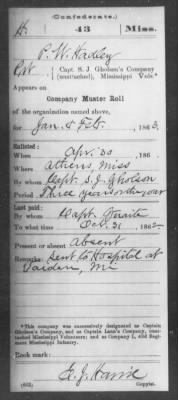 (Confederate.)
H. 43 Miss.
P. W. Hadley
Pvt, Capt. S. J. Gholson's Company
(unattached), Mississippi Vols.*
Appears on
Company Muster Roll
of the organization named above,
for Jan. & Feb., 1863.
Enlisted:
When Apr. 30, 186
Where Athens, Miss
By whom Capt. S. J. Gholson
Period Three years or the war
Last paid:
By whom Capt.
To what time Oct. 31, 1862
Present or absent Absent
Remarks: Sent to Hospital at
*This company was successively designated as Captain
Gholson's Company, and as Captain Lann's Company, unattached
Mississippi Volunteers; and as Company I, 43d Regiment
Mississippi Infantry.
Book mark:
(642)
Copyist.